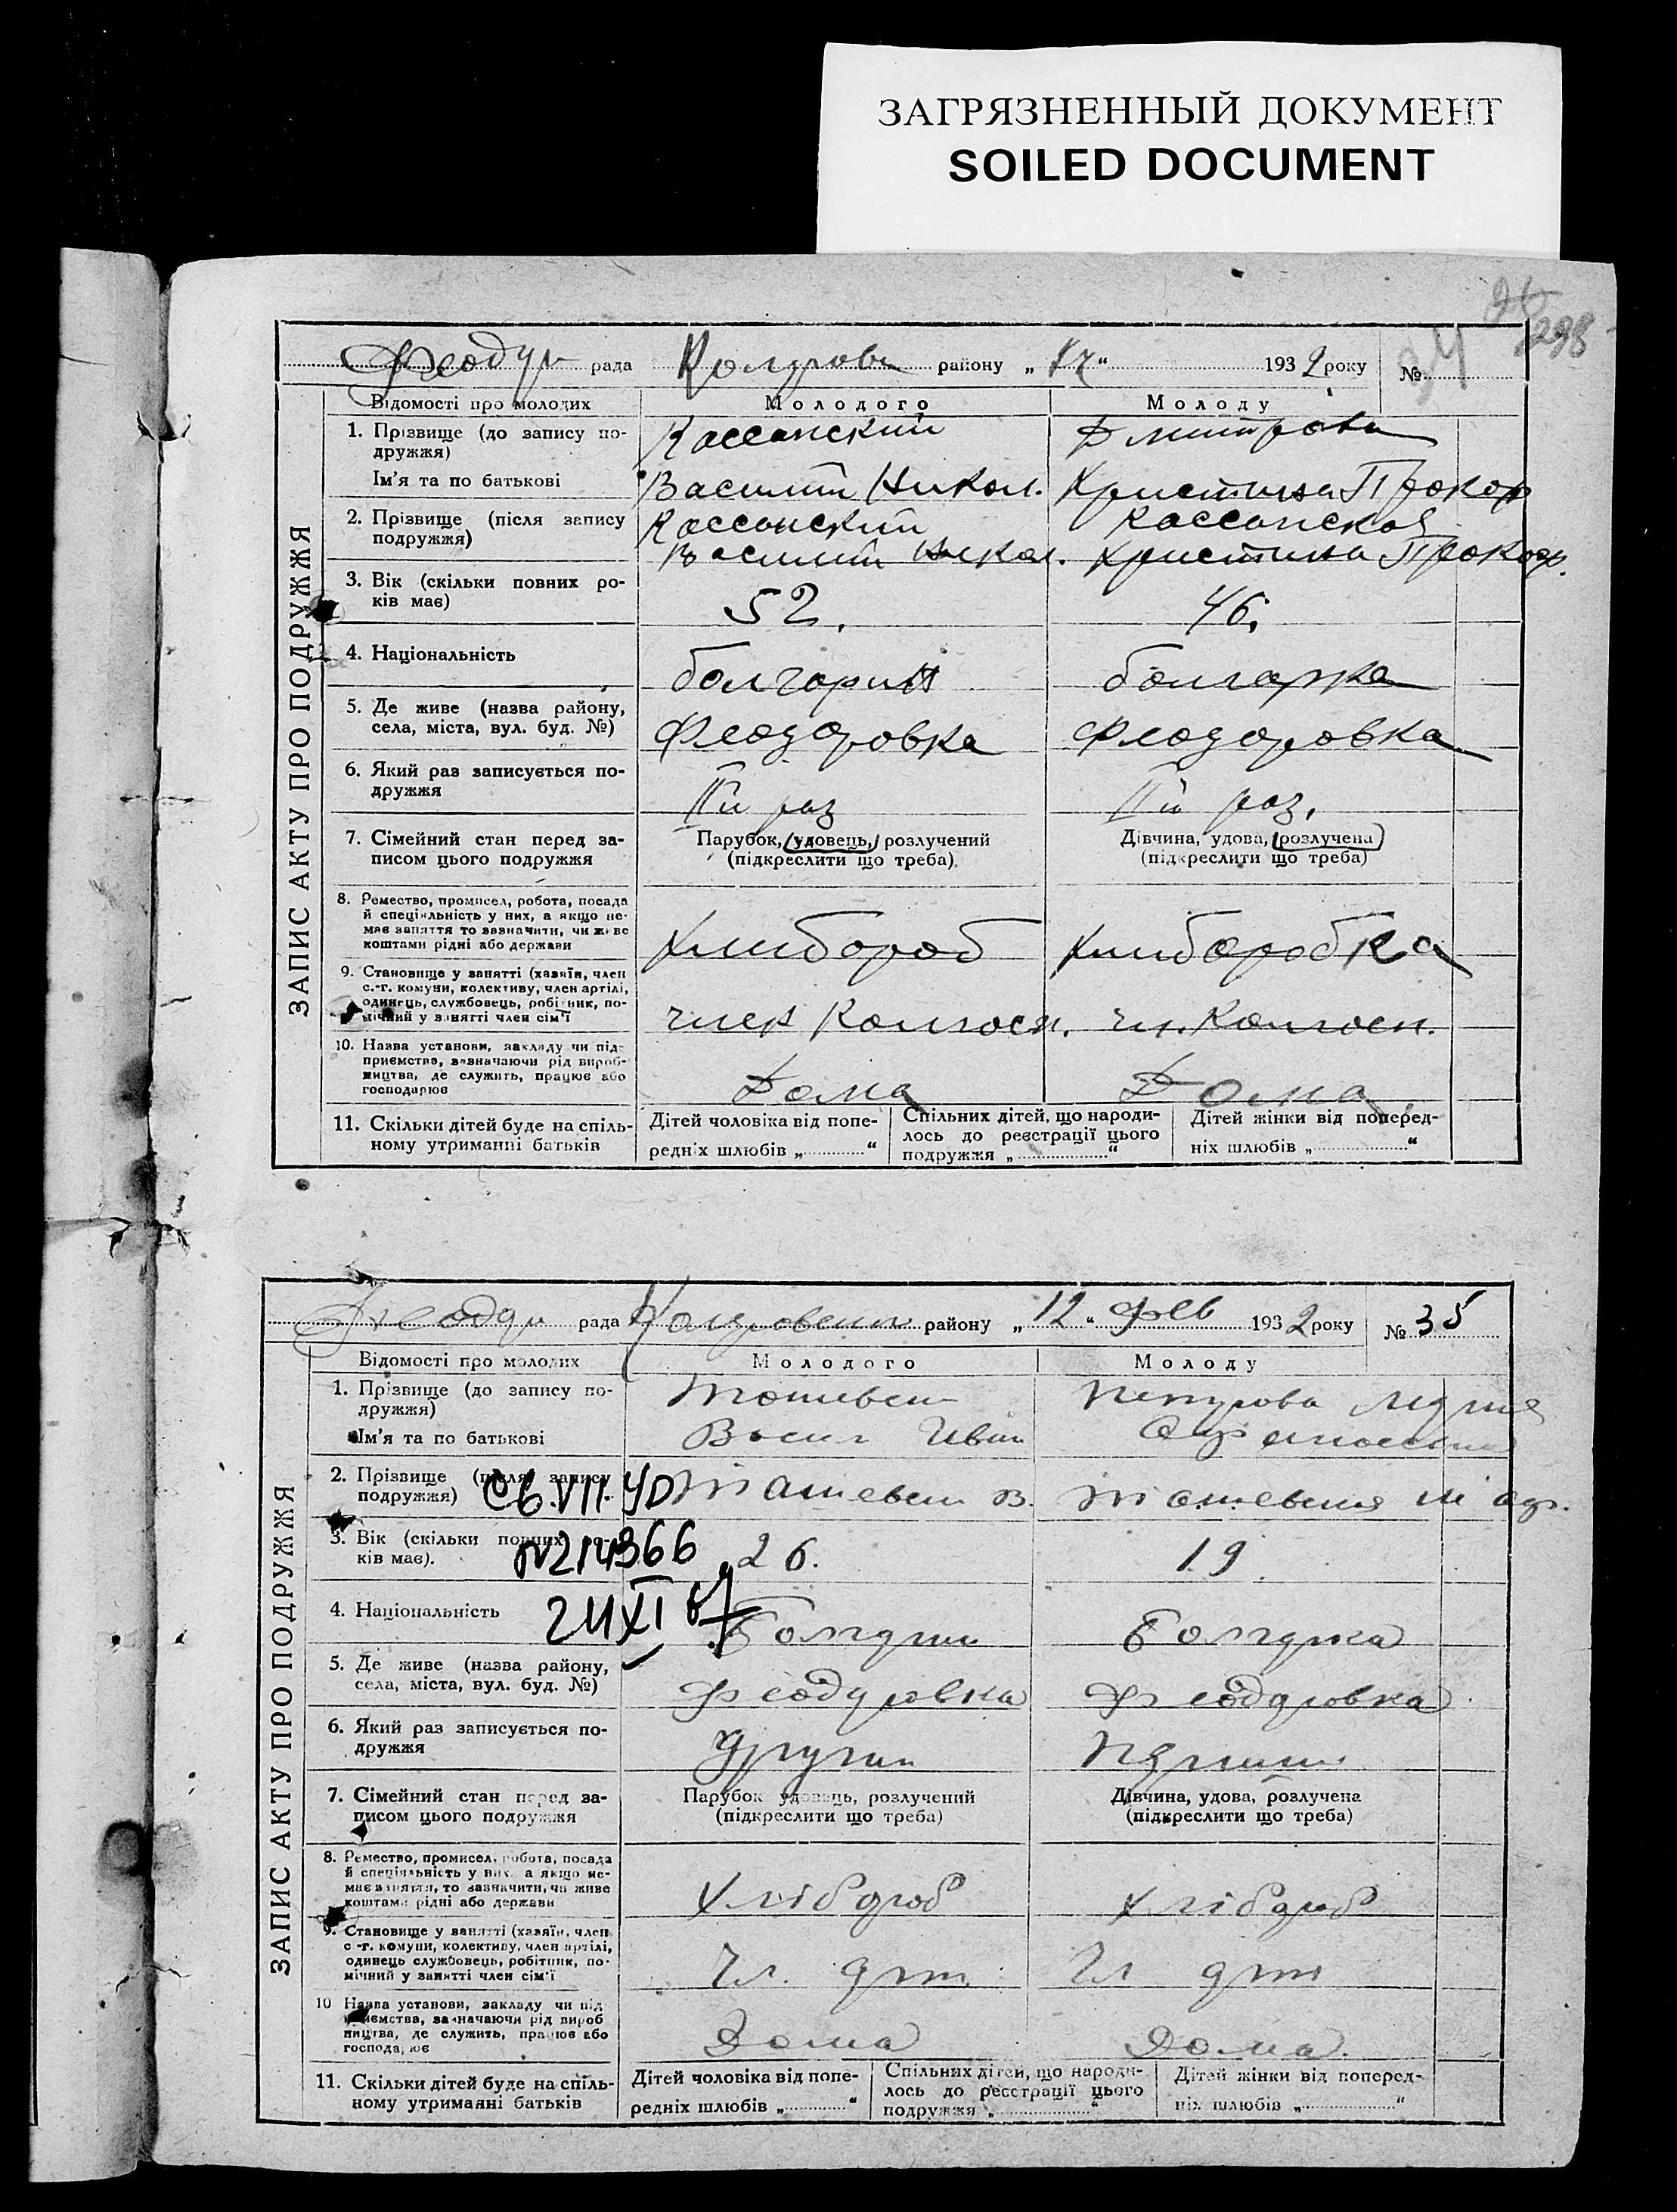 ЗАГРЯЗНЕННЫЙ ДОКУМЕНТ
SOILED DOCUMENT
298
рада району „ “ 1932 року № 34
ЗАПИС АКТУ ПРО ПОДРУЖЖЯ
Відомості про молодих Молодого Молоду
1. Прізвище (до запису по-
дружжя)
Кассанский Дмитрова
Ім'я та по батькові
Василий Никол. Христина Прокоф
2. Прізвище (після запису
подружжя)
Кассанский Кассанская
Василий Никол. Христина Прокоф.
3. Вік (скільки повних ро-
ків має)
52. 46.
4. Національність
болгарин болгарка
5. Де живе (назва району,
села, міста, вул. буд. №)
Феодоровка Феодоровка
6. Який раз записується по-
дружжя
IIй раз IIй раз.
7. Сімейний стан перед за-
писом цього подружжя
Парубок, удовець, розлучений
(підкреслити що треба)
Дівчина, удова, розлучена
(підкреслити що треба)
8. Ремество, промисел, робота, посада
й спеціяльність у них, а якщо не-
має заняття то зазначити, чи живе
коштами рідні або держави
Хлибороб Хлиборобка
9. Становище у занятті (хазяїн, член
с.-г. комуни, колективу, член артілі,
одинець, службовець, робітник, по-
мічний у занятті член сім'ї
член Колгосп. чл. Колгосп.
10. Назва установи, закладу чи під-
приємства, зазначаючи рід вироб-
ництва, де служить, працює або
господарює
Дома Дома
11. Скільки дітей буде на спіль-
ному утриманні батьків
Дітей чоловіка від попе-
редніх шлюбів „ “
Спільних дітей, що народи-
лось до реєстрації цього
подружжя „ “
Дітей жінки від поперед-
ніх шлюбів „ “
рада району „ 12 “ Фев 1932 року № 35
ЗАПИС АКТУ ПРО ПОДРУЖЖЯ
Відомості про молодих Молодого Молоду
1. Прізвище (до запису по-
дружжя)
Петрова
Ім'я та по батькові
Васил Иван
2. Прізвище (після запису
подружжя)
3. Вік (скільки повних ро-
ків має).
26. 19.
4. Національність
Болгарин Болгарка
5. Де живе (назва району,
села, міста, вул. буд. №)
Феодоровка Феодоровка
6. Який раз записується по-
дружжя
Другий Перший
7. Сімейний стан перед за-
писом цього подружжя
Парубок удовець, розлучений
(підкреслити що треба)
Дівчина, удова, розлучена
(підкреслити що треба)
8. Ремество, промисел, робота, посада
й спеціяльність у них, а якщо не-
має заняття, то зазначити, чи живе
коштами рідні або держави
Хлібороб Хлібороб
9. Становище у занятті (хазяїн, член
с.-г. комуни, колективу, член артілі,
одинець службовець, робітник, по-
мічний у занятті член сім'ї
Чл. арт. Чл арт
10 Назва установи, закладу чи під
приємства, зазначаючи рід вироб
ництва, де служить, працює або
господарює
Дома Дома.
11. Скільки дітей буде на спіль-
ному утриманні батьків
Дітей чоловіка від попе-
редніх шлюбів „ “
Спільних дітей, що народи-
лось до реєстрації цього
подружжя „ “
Дітей жінки від поперед-
ніх шлюбів „ “